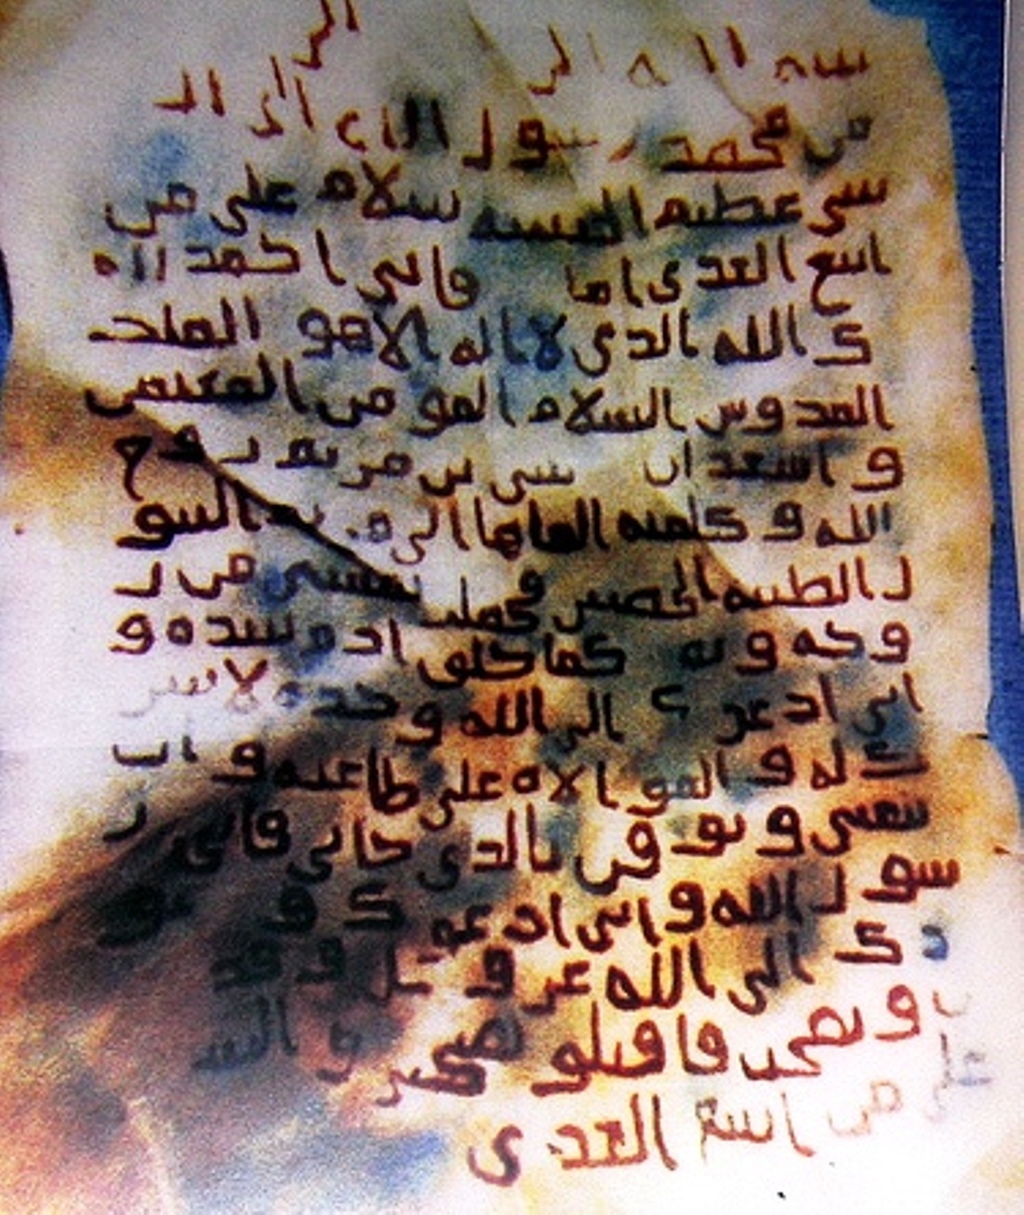 سم الله الر الر
من محمد رسول الله الى الد
سى عظيم الحبسه سلام على من
اتبع الهدى اما فانى احمد اله
ك الله الدى لا اله الا هو الملك
القدوس السلام المومن المهيمن
و اشهد ان عيسى بن مريم روح
الله و كلمته القاها الى مريم البتو
ل الطيبه الحصينه فحملت بعيسى من ر
وحه و نفخه كما خلق ادم بيده و
انى ادعوك الى الله وحده لا شر
يك له و الموالاه على طاعته و ان
تتبعنى و توقن بالدى جانى فانى ر
سول الله و انى ادعوك و جنو
دك الى الله عز و جل و قد
بلغت و نصحت فاقبلو نصحى و السلام
على من اتبع الهدى